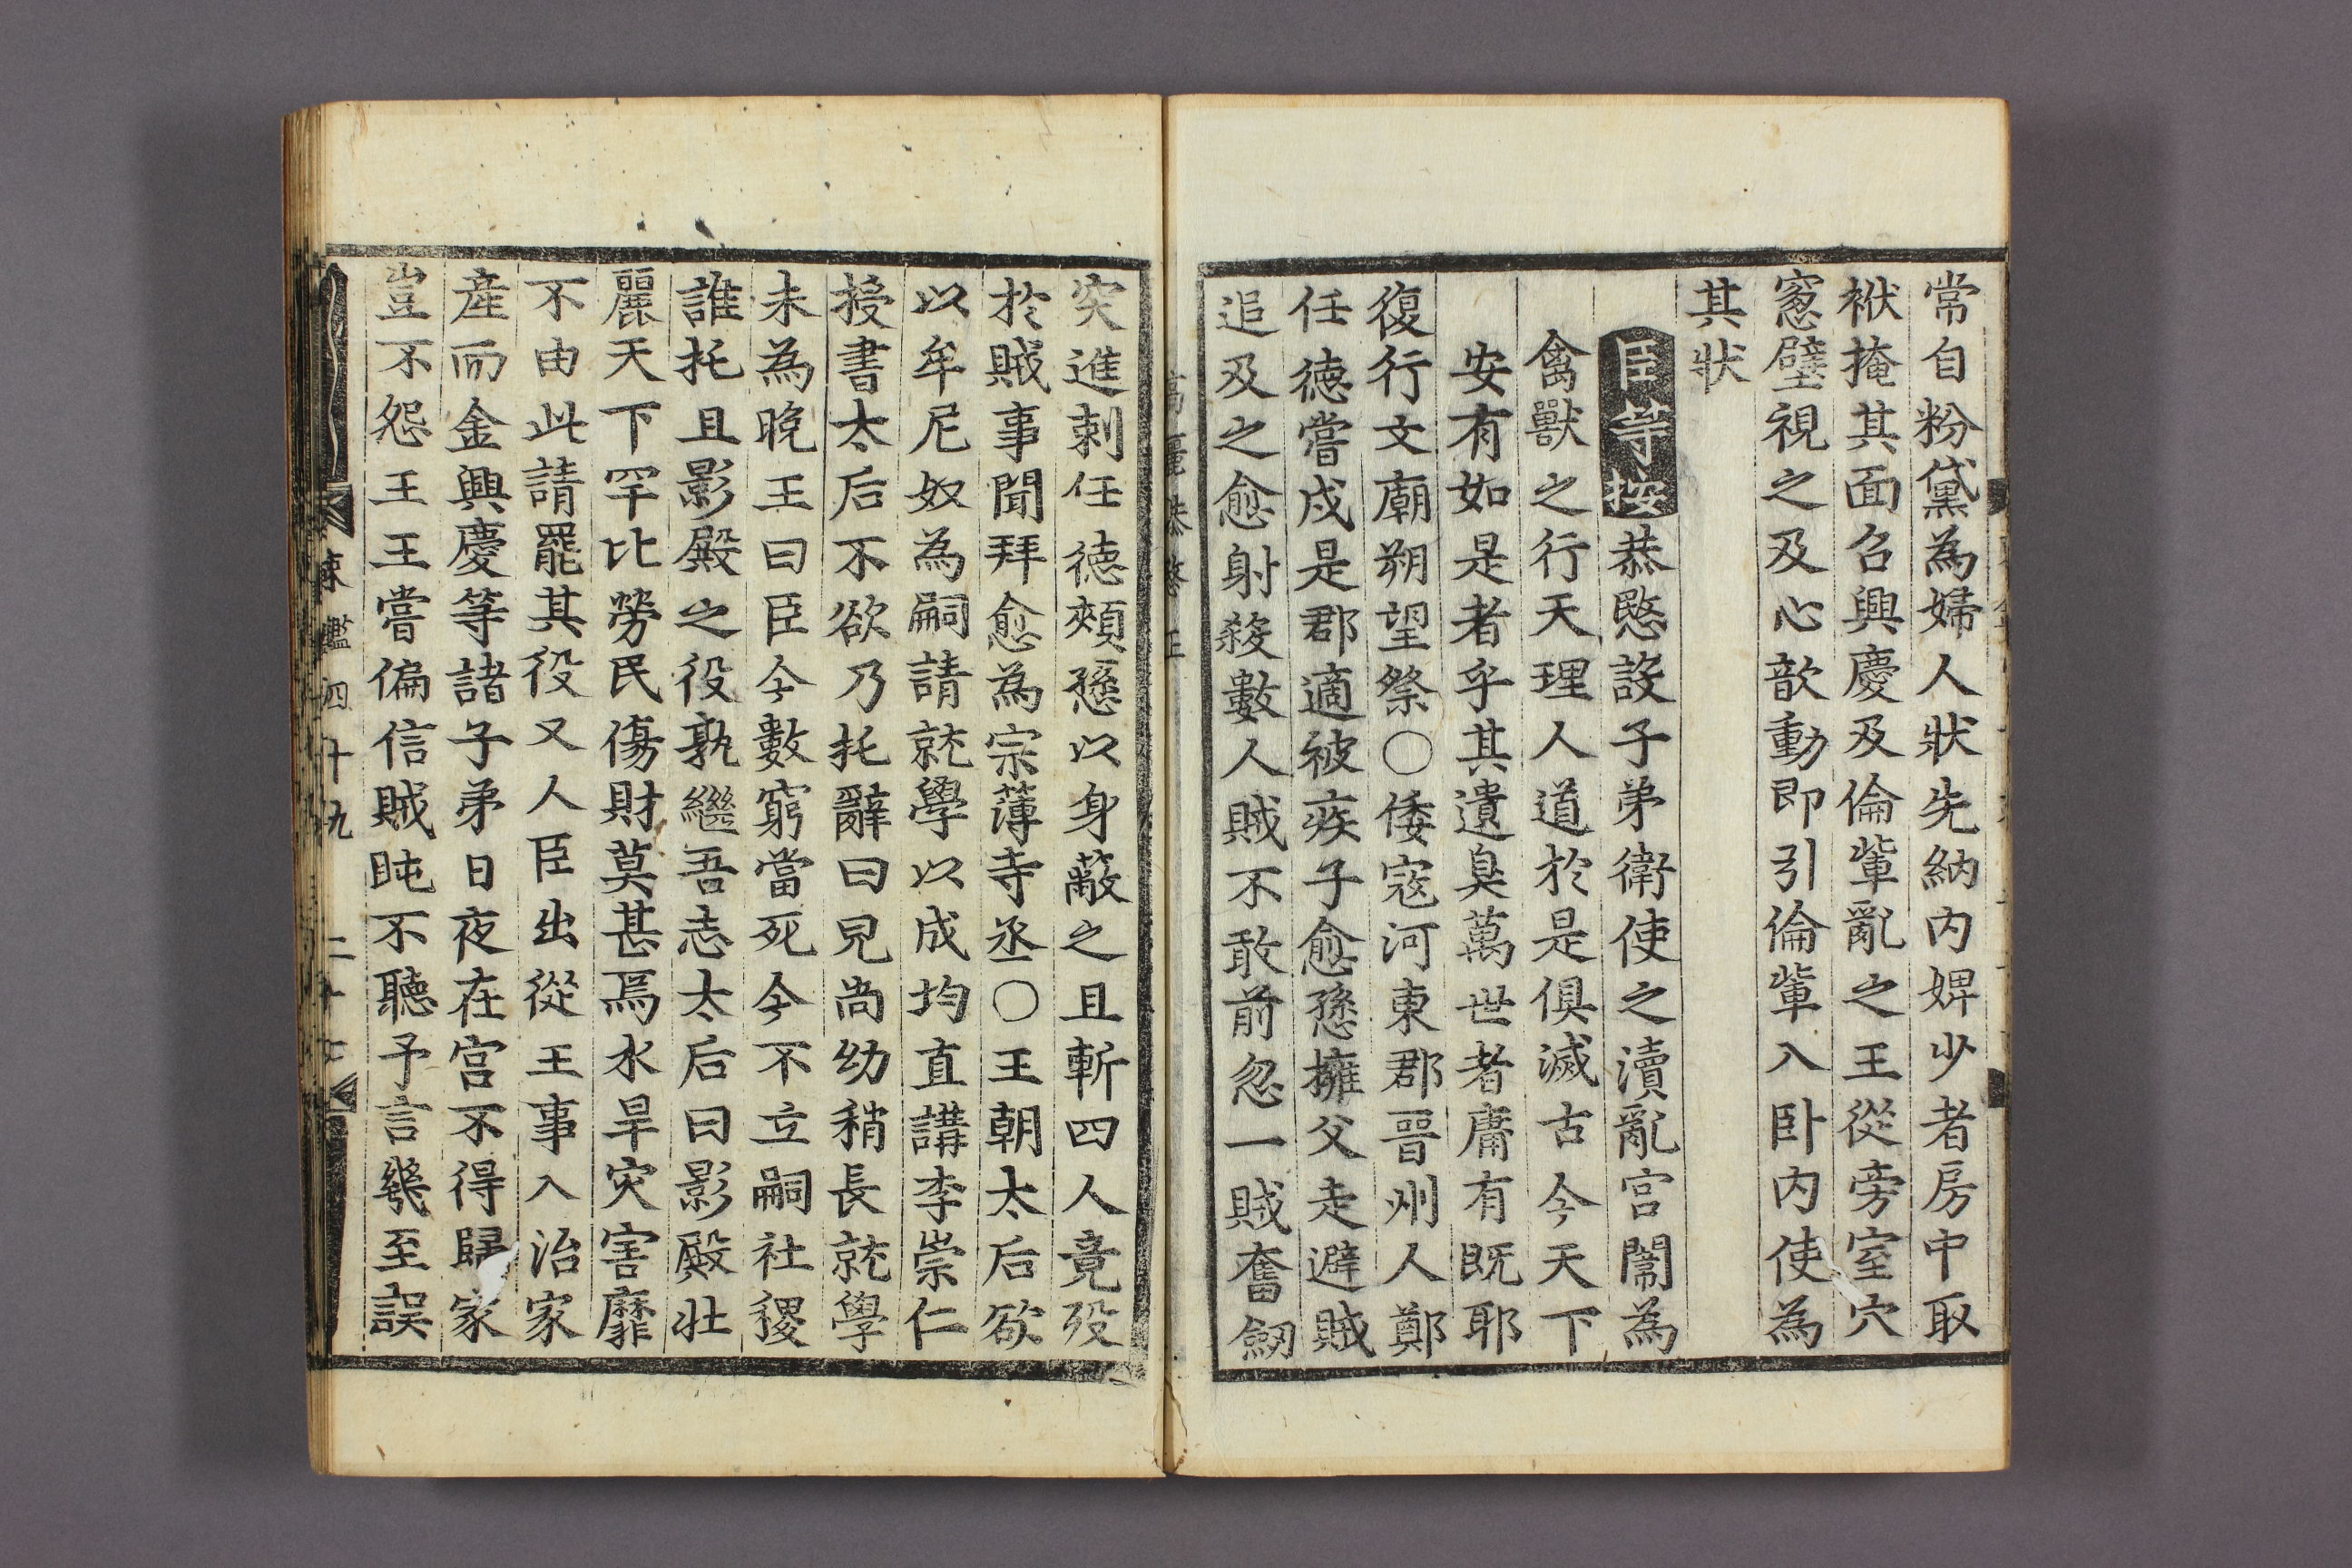 常自粉黛為婦人狀先納內婢少者房中取
袱掩其面召興慶及倫軰亂之王從旁室穴
窓壁視之及心歆動即引倫軰入卧內使為
其狀
臣等按恭愍設子弟衛使之瀆亂宮闈為
禽獸之行天理人道於是俱滅古今天下
安有如是者乎其遺臭萬世者庸有既耶
復行文廟朔望祭○倭寇河東郡晉州人鄭
任德嘗戍是郡適被疾子愈愻擁父走避賊
追及之愈射殺數人賊不敢前忽一賊奮劒
突進刺任德頰愻以身蔽之且斬四人竟歿
於賊事聞拜愈為宗薄寺丞○王朝太后欲
以牟尼奴為嗣請就學以成均直講李崇仁
授書太后不欲乃托辭曰兒尚幼稍長就學
未為晚王曰臣今數窮當死今不立嗣社稷
誰托且影殿之役孰繼吾志太后曰影殿壯
麗天下罕比勞民傷財莫甚焉水旱灾害靡
不由此請罷其役又人臣出從王事入治家
產而金興慶等諸子弟日夜在宮不得歸家
豈不怨王王嘗偏信賊盹不聽予言幾至誤
東鑑四十九